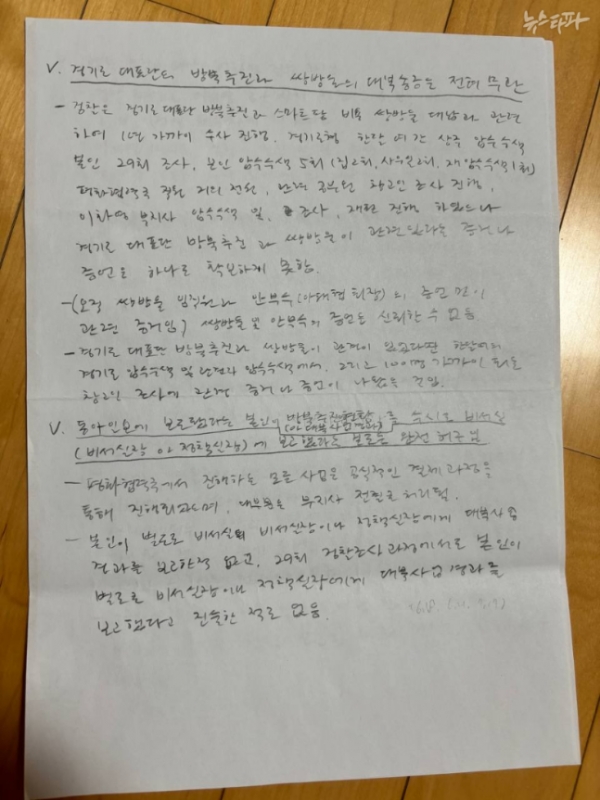 뉴스타파
V. 경기도 대표단의 방북추진과 쌍방울의 대북송금은 전혀 무관
- 검찰은 경기도 대표단 방북추진과 스마트팜 비용 쌍방울 대납과 관련
하여 1년 가까이 수사 진행. 경기도청 한달 여간 상주 압수수색
본인 29회 조사, 본인 압수수색 5회 (집2회, 사무실2회, 재압수수색1회)
평화협력국 직원 거의 전원, 관련 공무원 참고인 조사 진행,
이화영 부지사 압수수색 및 조사, 재판 진행 하였으나
경기도 대표단 방북추진과 쌍방울이 관련있다는 증거나
증언을 하나도 확보하지 못함.
- (오직 쌍방울 임직원과 안부수(아태협 회장)의 증언만이
관련 증거임) 쌍방울 및 안부수의 증언은 신뢰할 수 없음
- 경기도 대표단 방북추진과 쌍방울이 관련이 있었다면
경기도 압수수색 및 관련자 압수수색에서, 그리고 100여명 가까이 되는
참고인 조사에 관련 증거나 증언이 나왔을 것임.
V. 동아일보에 보도됐다는 본인이 방북추진현황을 수시로 비서실
(이 대북사업 결과)
(비서실장 or 정책실장)에 보고했다는 보도는 완전 허구임
- 평화협력국에서 진행하는 모든 사업은 공식적인 결재과정을
통해 진행되었으며, 대부분은 부지사 전결로 처리됨.
- 본인이 별도로 비서실의 비서실장이나 정책실장에게 대북사업
결과를 보고한적 없고, 29회 검찰조사 과정에서도 본인이
별도로 비서실장이나 정책실장에게 대북사업 결과를
보고했다고 진술한 적도 없음.